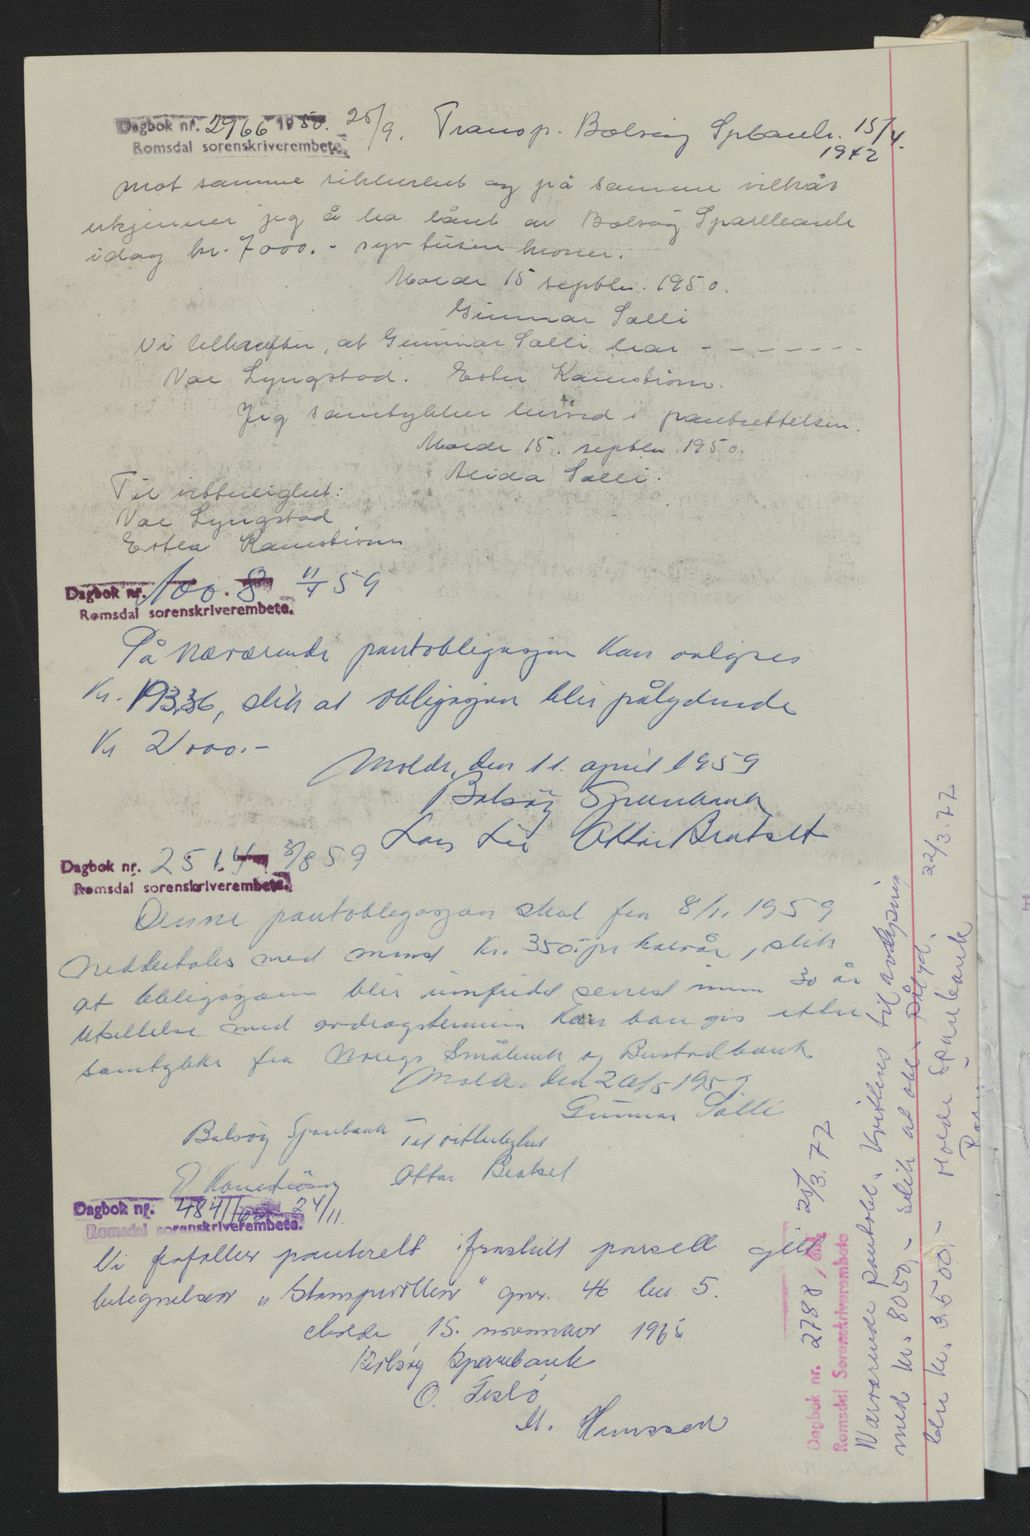 Dagbok nr. 2966 1950. 25/9. Transp. Bolsøy Spbank. 15/4.
1942
Romsdal sorenskriverembete.
Mot samme sikkerhet og på samme vilkår
erkjenner jeg å ha lånt av Bolsøy Sparebank
idag kr. 7000.- syv tusen kroner.
Molde 15 septbr. 1950.
Gunnar Salli
Vi bekrefter, at Gunnar Salli har - - - - - - -
Lyngstad. Ester Ramstrøm.
Jeg samtykker herved i pantsettelsen.
Molde 15. septbr. 1950.
Alida Salli.
Til vitterlighet:
Lyngstad
Ester Ramstrøm
Dagbok nr. 100. 11/4 59
Romsdal sorenskriverembete.
På nærværende pantobligasjon kan avlyses
Kr. slik at obligasjonen blir pålydende
Kr
Molde, den 11. april 1959
Bolsøy Sparebank
Lars Lie Ottar Bratset
Dagbok nr. 2514 3/8 59
Romsdal sorenskriverembete.
Denne pantobligasjon skal fra 8/11 1959
nedbetales med minst kr. 350.- pr halvår, slik
at obligasjonen blir innfridd senest innen 30 år
Utsettelse med avdragsterminer kan bare gis etter
samtykke fra Noregs Småbruk og Bustadbank
Molde, den
Gunnar Salli
Bolsøy Sparebank Til vitterlighet
Ramstrøm Ottar Bratset
Dagbok nr. 4841 24/11
Romsdal sorenskriverembete.
Vi frafaller panterett i fraskilt parsell gitt
betegnelsen gnr. 46 bnr. 5.
Molde 15. november 1965
Bolsøy Sparebank
O. Teslo
M. Hanssen
Dagbok nr. 2788, 25/3. 72
Romsdal Sorenskriverembete
Nærværende pantobl. kvitteres til avlysing
med kr. 8050,- slik at obl. pålyd.
blir kr. 3.500,- Molde Sparebank 22/3.72